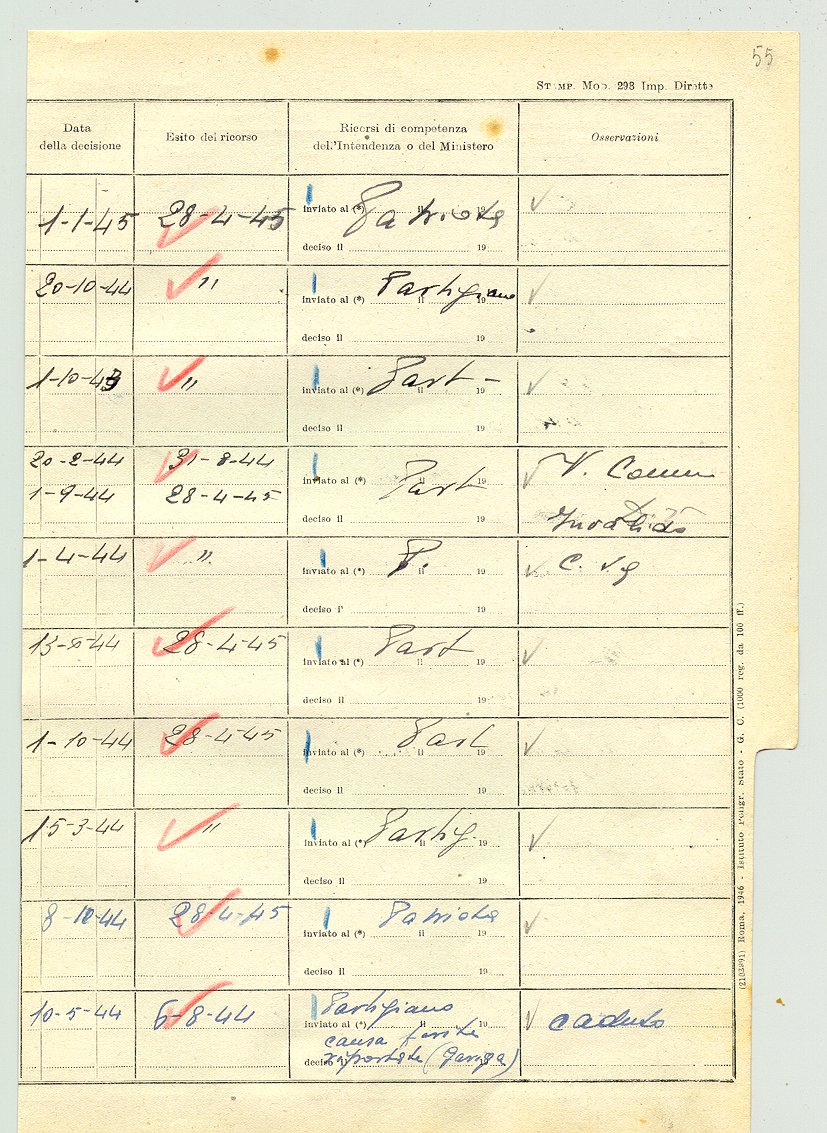 55
STAMP. MOD. 298 Imp. Dirette
Data della decisione
Esito del ricorso
Ricorsi di competenza dell'Intendenza o del Ministero
Osservazioni
1-1-45 28-4-45 inviato al (*) Patriota il 19
deciso il 19
20-10-44 " inviato al (*) Partigiano il 19
deciso il 19
1-10-43 " inviato al (*) Part- il 19
deciso il 19
20-2-44 31-8-44 inviato al (*) Part il 19 V. Comm
1-9-44 28-4-45 deciso il 19 Invalido
1-4-44 " inviato al (*) P. il 19 C. V. g
deciso il 19
13-8-44 28-4-45 inviato al (*) Part il 19
deciso il 19
1-10-44 28-4-45 inviato al (*) Part il 19
deciso il 19
15-3-44 " inviato al (*) Partig. il 19
deciso il 19
8-10-44 28-4-45 inviato al (*) Patriota il 19
deciso il 19
10-5-44 6-8-44 Partigiano caduto
inviato al (*) il 19
causa ferite
deciso il 19
riportate
(2103991) Roma, 1946 - Istituto Poligr. Stato - G. C. (1000 reg. da 100 ff.)